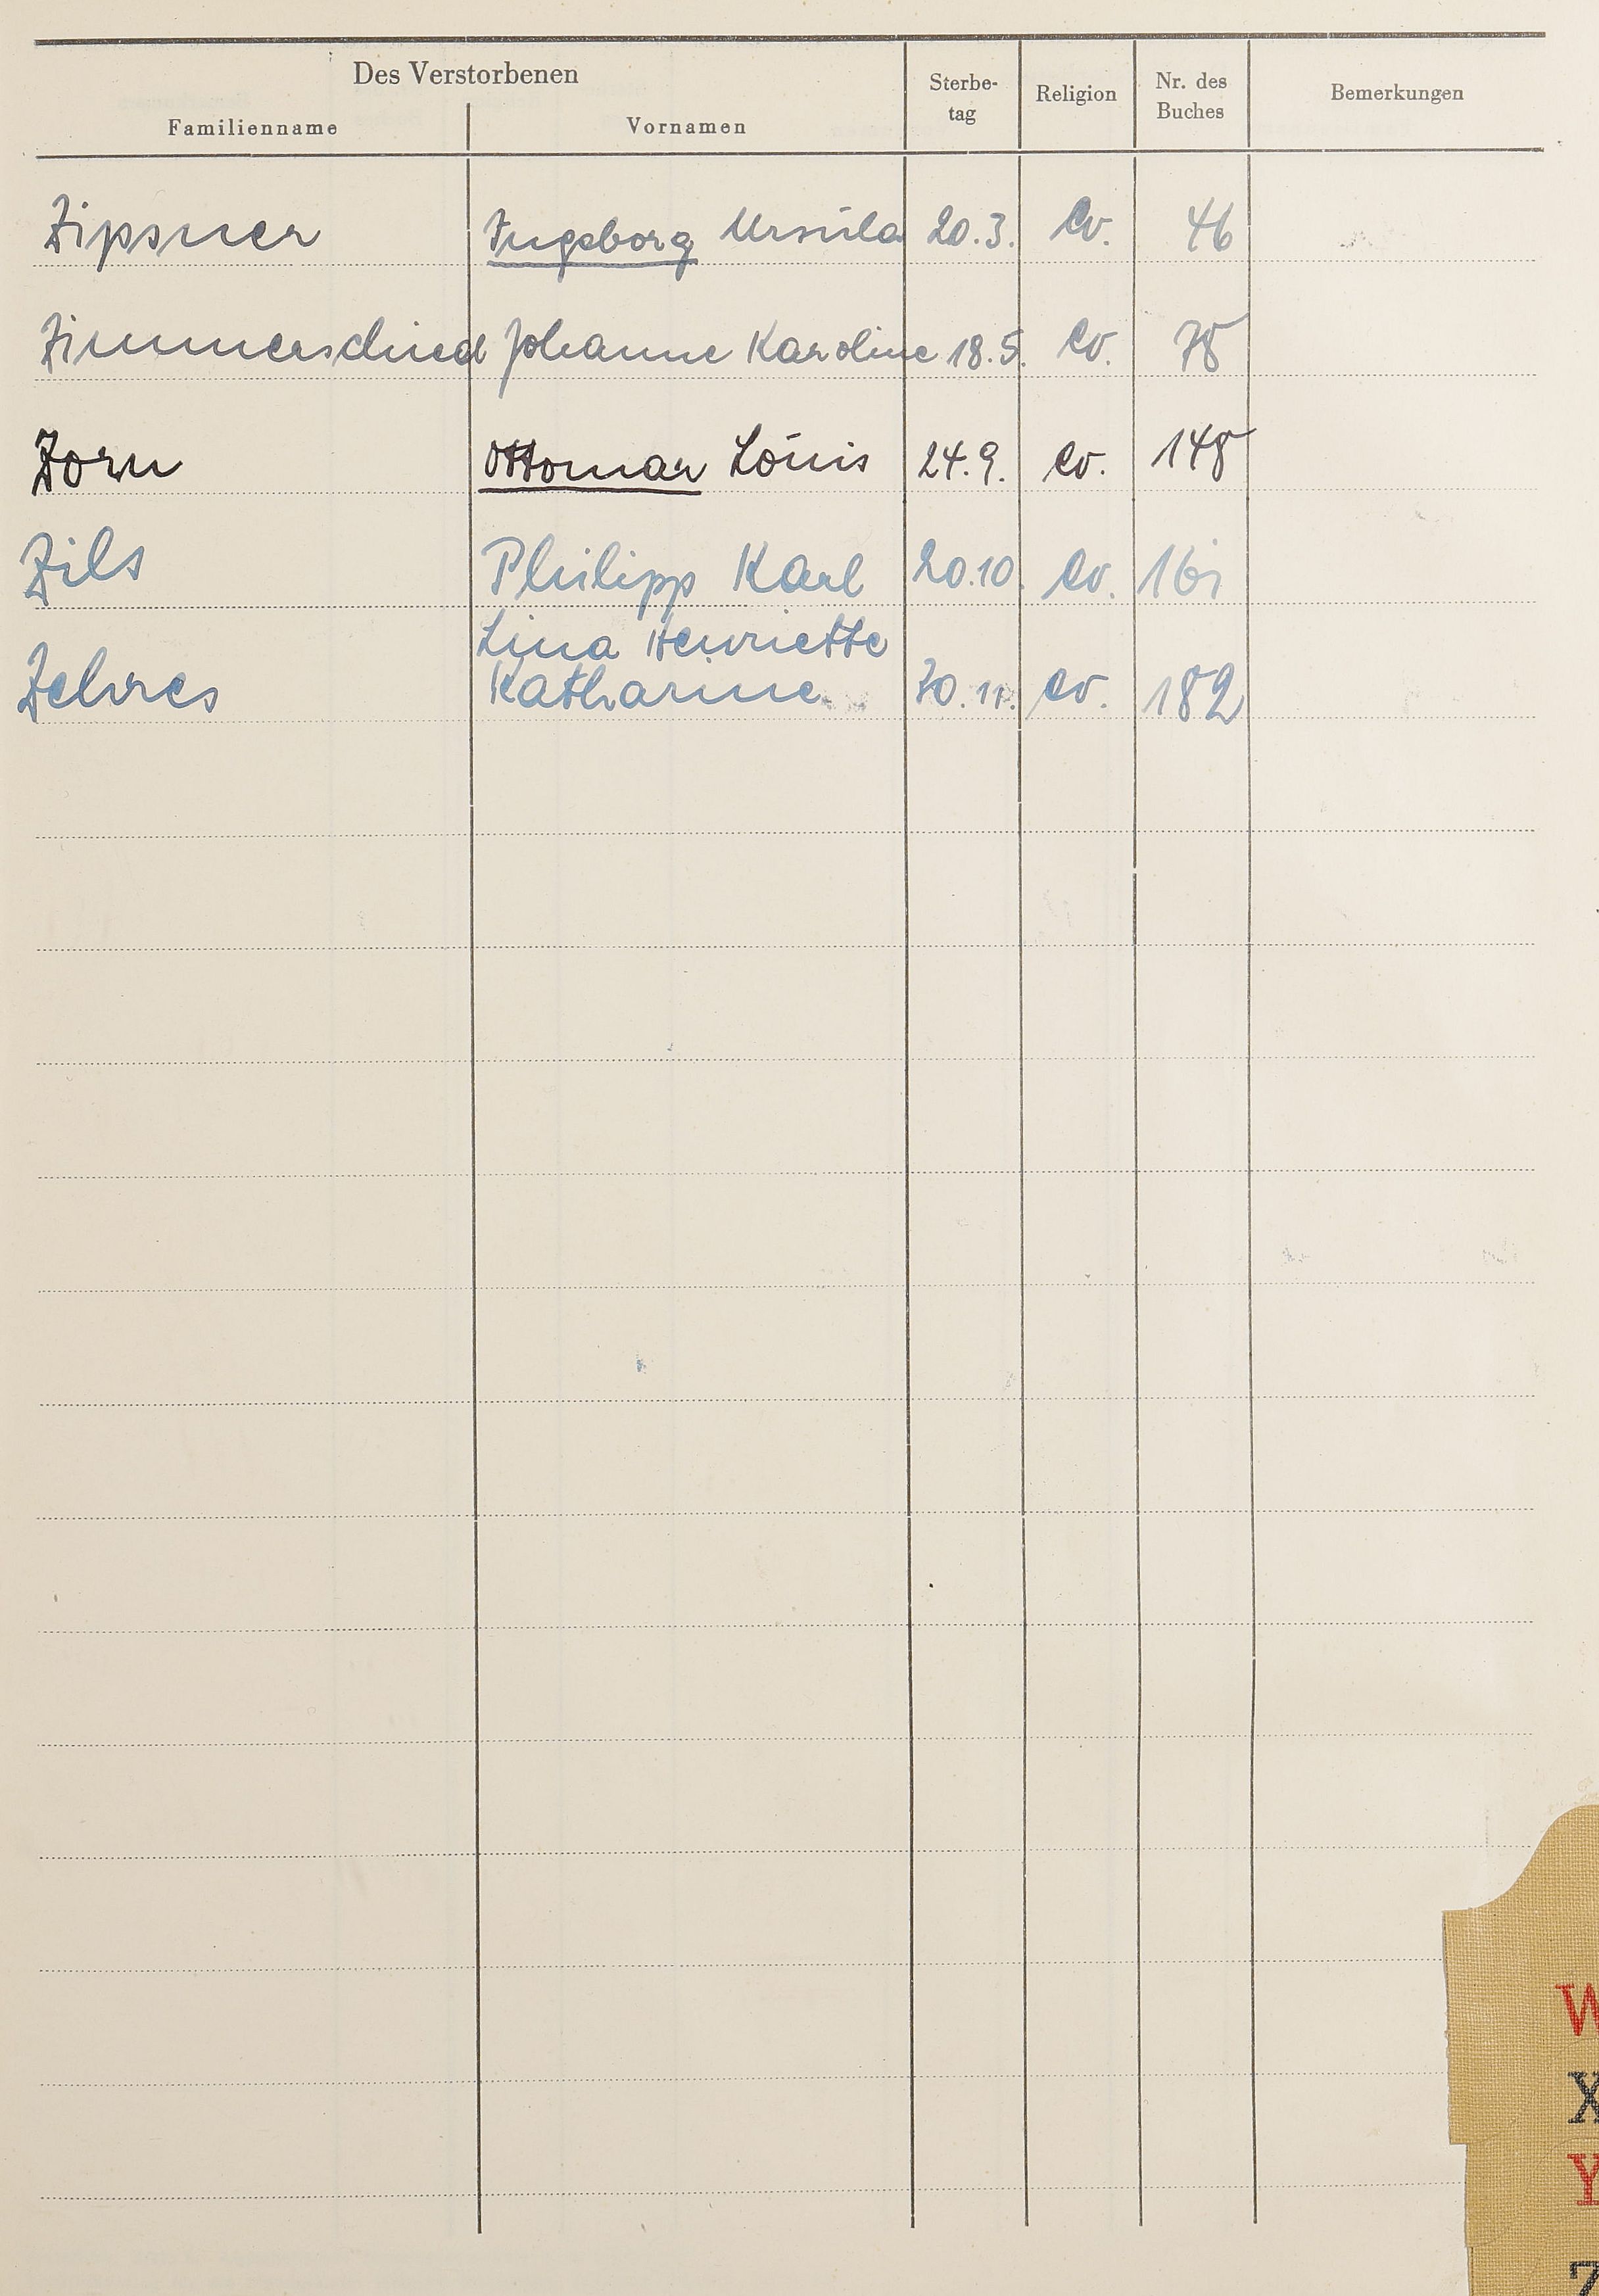 Des Verstorbenen Sterbe- Religion Nr. des Bemerkungen
Familienname Vornamen tag Buches
Zipsner Ingeborg Ursula 20.3. ev. 46
Zimmerschied Johanne Karoline 18.5. ev. 78
Zorn Ottomar Louis 24.9. ev. 148
Zils Philipp Karl 20.10. ev.
Lina Henriette
Zehres Katharine 30.11. ev. 182
W
X
Y
Z